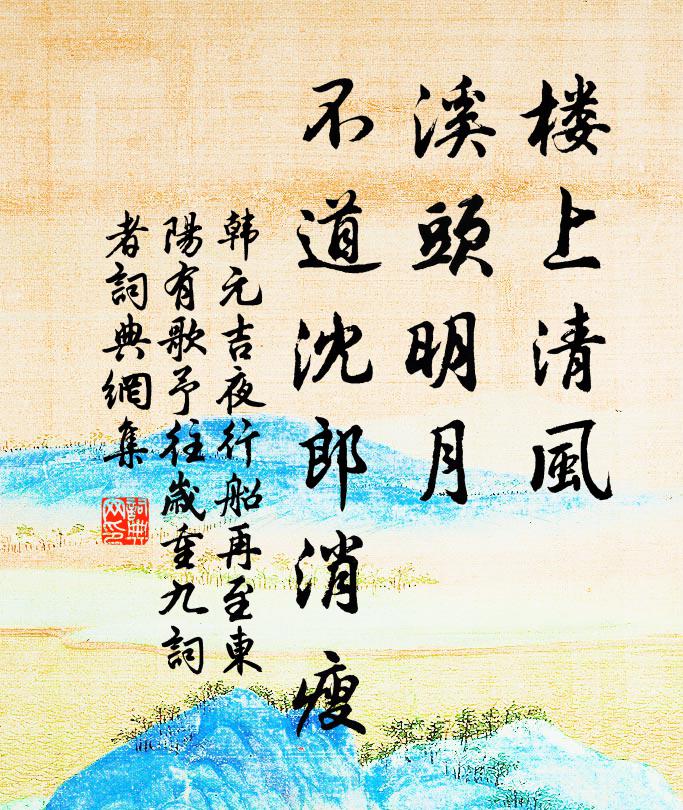 楼上清風
溪頭明月
不道沈郎消瘦
韩元吉夜行船再至東
陽有歌予往歲重九詞
者詞典網集
詞典
网印